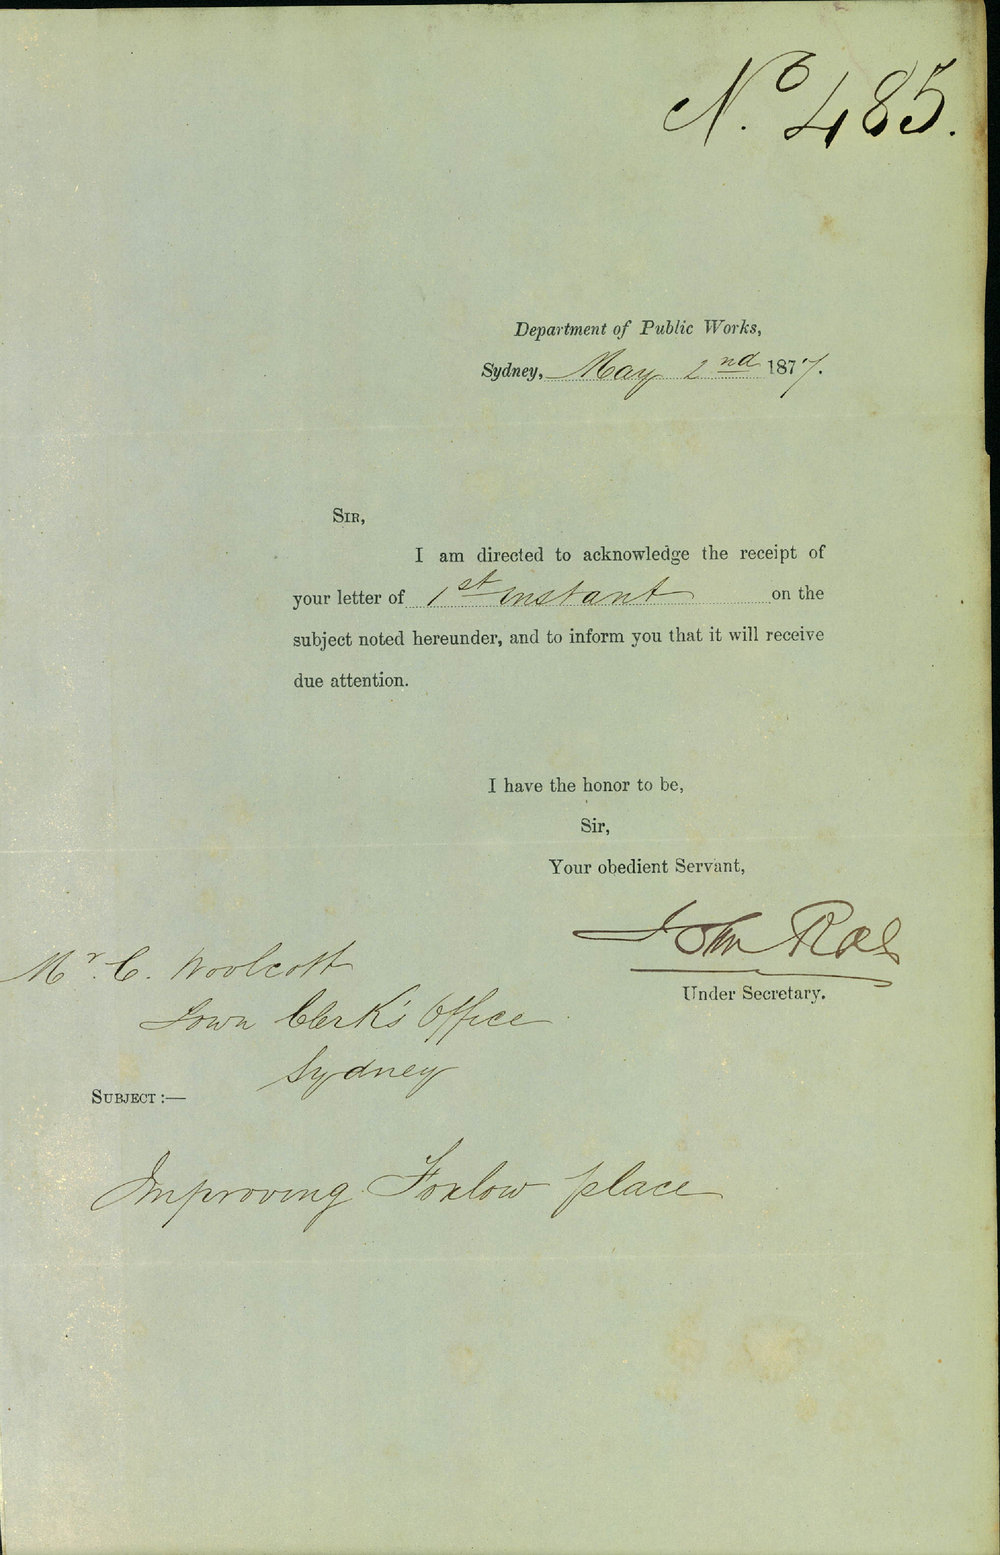 No. 485.
Department of Public Works,
Sydney, May 2nd 1877.
SIR,
I am directed to acknowledge the receipt of
your letter of 1st instant on the
subject noted hereunder, and to inform you that it will receive
due attention.
I have the honor to be,
Sir,
Your obedient Servant,
John Rae
Under Secretary.
Mr. C. Woolcott
Town Clerk's Office
Sydney
SUBJECT:—
Improving Foxlow place